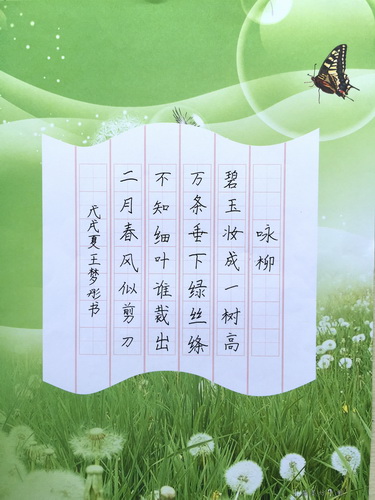 咏柳
碧玉妆成一树高
万条垂下绿丝绦
不知细叶谁裁出
二月春风似剪刀
戊戌夏王梦彤书